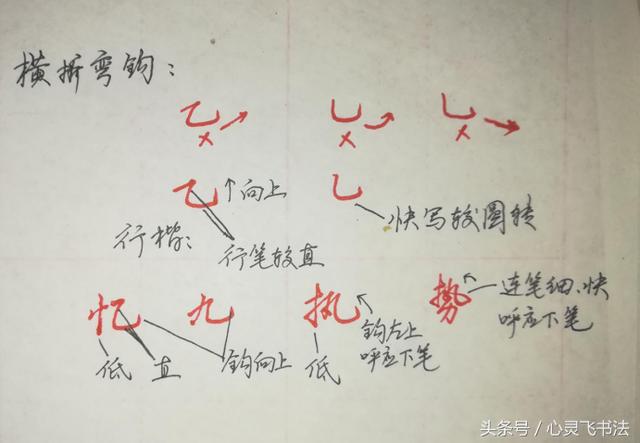 横折弯钩：
乙 乚 乚
× × ×
乙 向上 乚
快写较圆转
行楷：
行笔较直
忆 九 执 势
连笔细、快
呼应下笔
钩左上
呼应下笔
低 直 钩向上 低
头条号 / 心灵飞书法